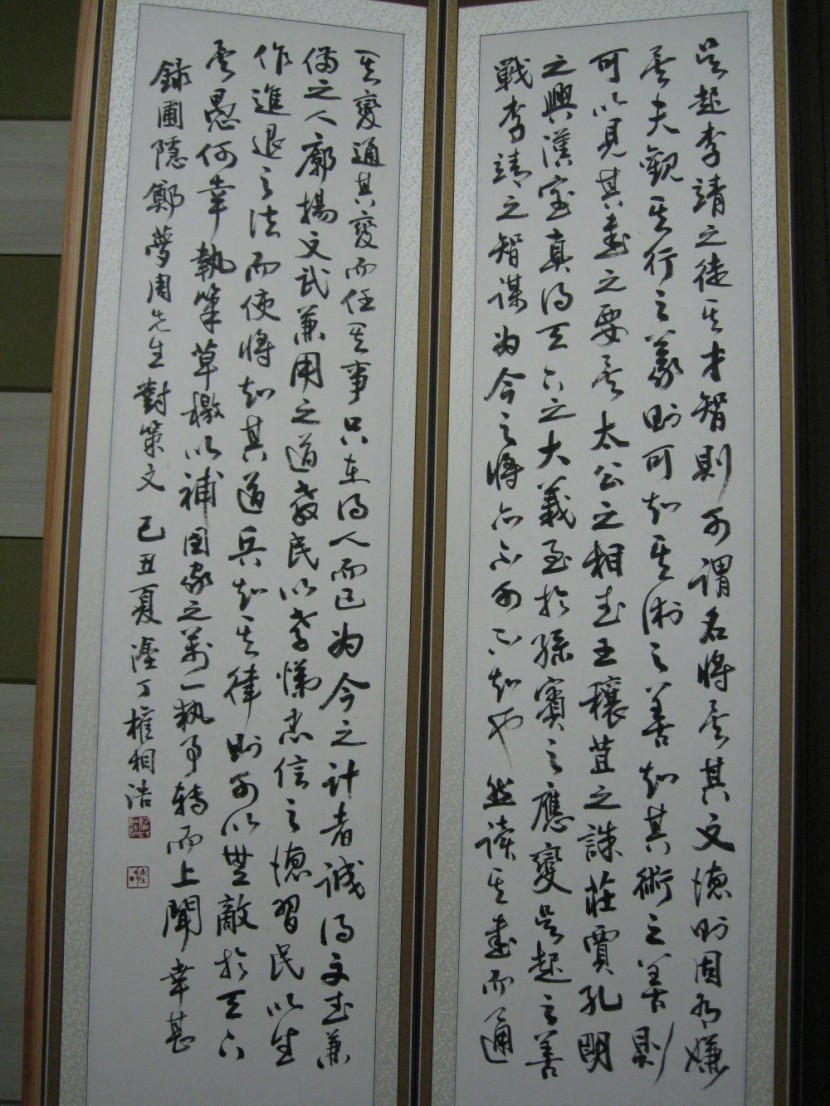 吳起李靖之徒其才智則可謂名將矣其文德則固有嫌
矣夫觀其行之義則可知其術之善知其術之善則
可以見其書之要矣太公之相武王穰苴之誅莊賈孔明
之興漢室真得天下之大義至於孫臏之應變吳起之善
戰李靖之智謀為今之將亦不可不知也然讀其書而通
其變通其變而任其事只在得人而已為今之計者誠得文武兼
備之人廓揚文武兼用之道敎民以孝悌忠信之德習民以坐
作進退之法而使將知其道兵知其律則可以無敵於天下
矣愚何幸執筆草檄以補國家之萬一執事轉而上聞幸甚
錄圃隱鄭夢周先生對策文 己丑夏 丁權相浩